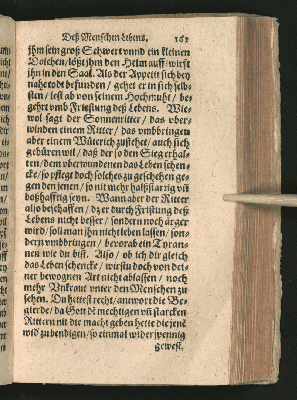 Deß Menschen Lebens. 161
jhm sein groß Schwert vnnd ein kleinen
Dolchen / lößt jhm den Helm auff / wirft
jhn in den Saal. Als der Appetit sich bey
nahe todt befunden / gehet er in sich selb-
sten / lest ab von seinem Hochmuht / be-
gehrt vmb Fristung deß Lebens. Wie-
wol sagt der Sonnenritter / das vber-
winden einem Ritter / das vmbbringen
aber einem Wüterich zustehet / auch sich
gebüren wil / daß der so den Sieg erhal-
ten / dem vberwundenen das Leben schen-
cke / so pflegt doch solches zu geschehen ge-
gen denen / so nit mehr halßstarrig vñ
boßhafftig seyn. Wann aber der Ritter
also beschaffen / dz er durch Fristung deß
Lebens nicht besser / sondern noch ärger
wird / soll man jhn nicht leben lassen / son-
dern vmbbringen / bevorab ein Tyran-
nen wie du bist. Also / ob ich dir gleich
das Leben schencke / wirstu doch von dei-
ner bewognen Art nicht ablassen / noch
mehr Vnkraut vnter den Menschen zu
sehen. Du hettest recht / antwort die Be-
girde / da Gott de mechtigen vñ starcken
Rittern nit die macht geben hette die jenẽ
wid zu bendigen / so einmal widerspennig
gewest.